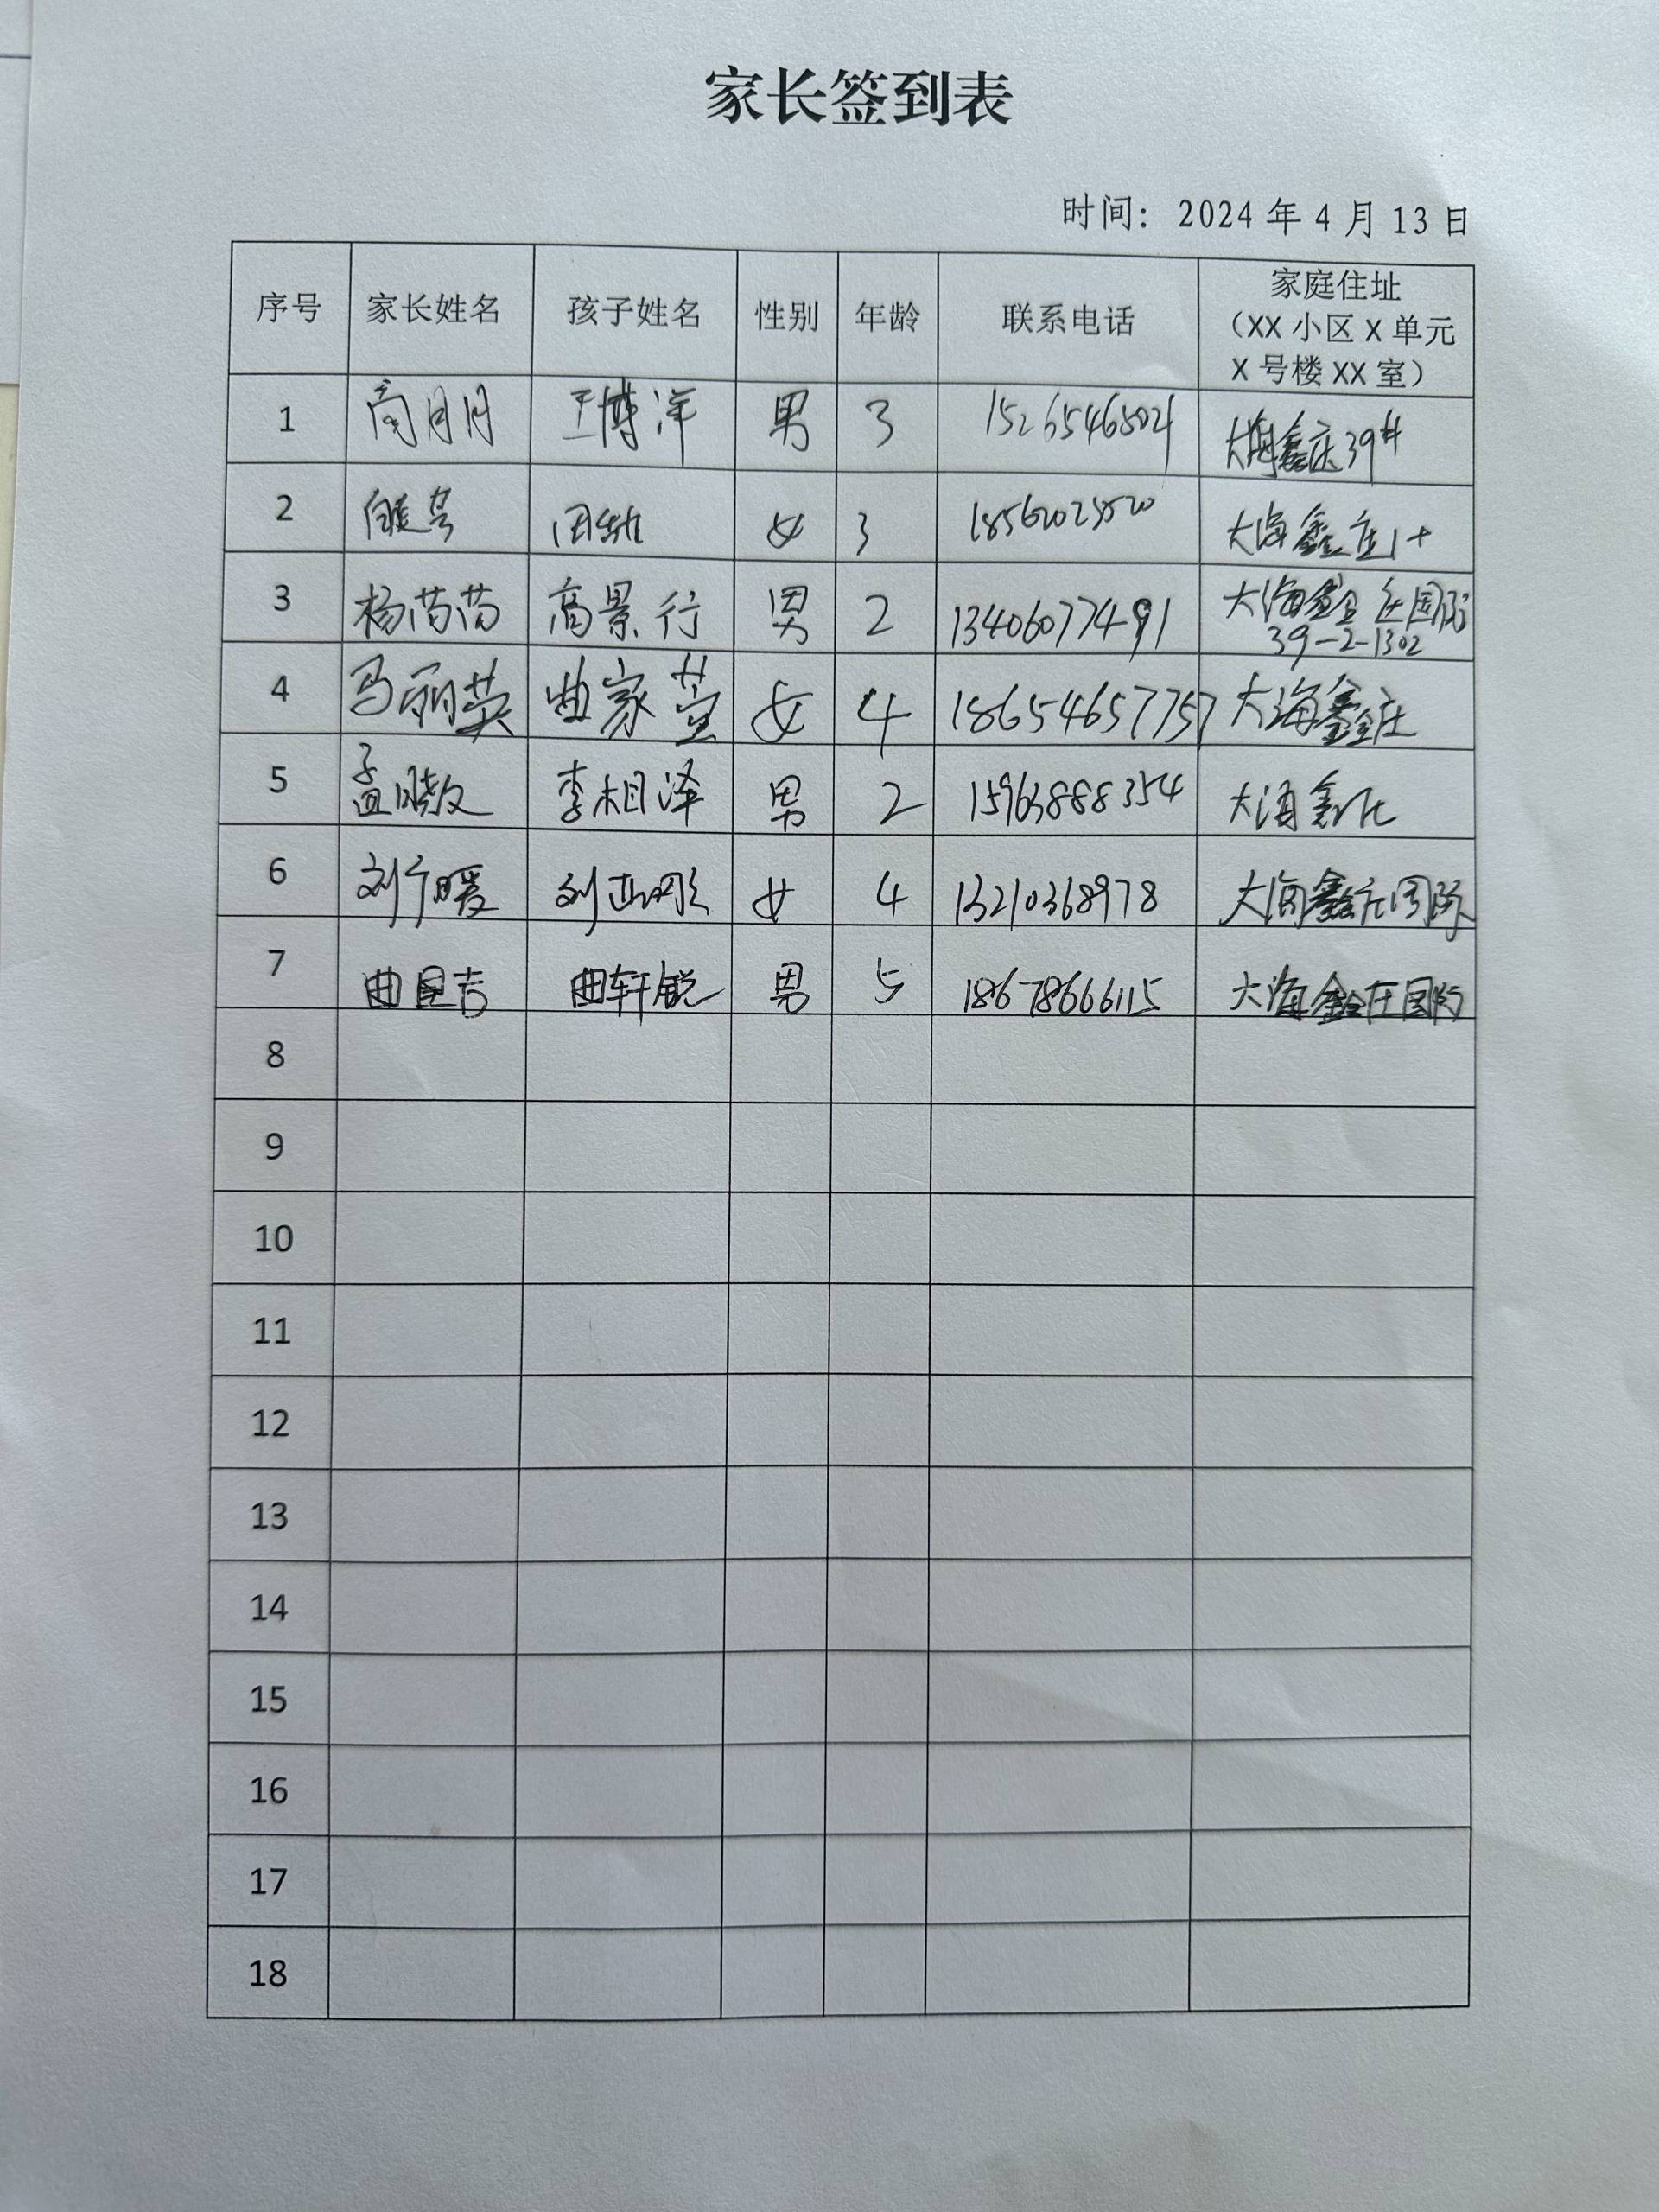 家长签到表
时间：2024年4月13日
序号 家长姓名 孩子姓名 性别 年龄 联系电话 家庭住址
（XX小区X单元
X号楼XX室）
1 商月月 王博洋 男 3 15265465021 大海鑫庄39#
2 女 3 大海鑫庄1#
3 杨芮芮 高景行 男 2 13406077491 大海鑫庄国际
39-2-1302
4 马丽英 曲家萱 女 4 18654657757 大海鑫庄
5 孟晓敏 李相泽 男 2 15963888354 大海鑫庄
6 女 4 13210368978 大海鑫庄国际
7 曲昌吉 曲轩锐 男 5 18678666115 大海鑫庄国际
8
9
10
11
12
13
14
15
16
17
18